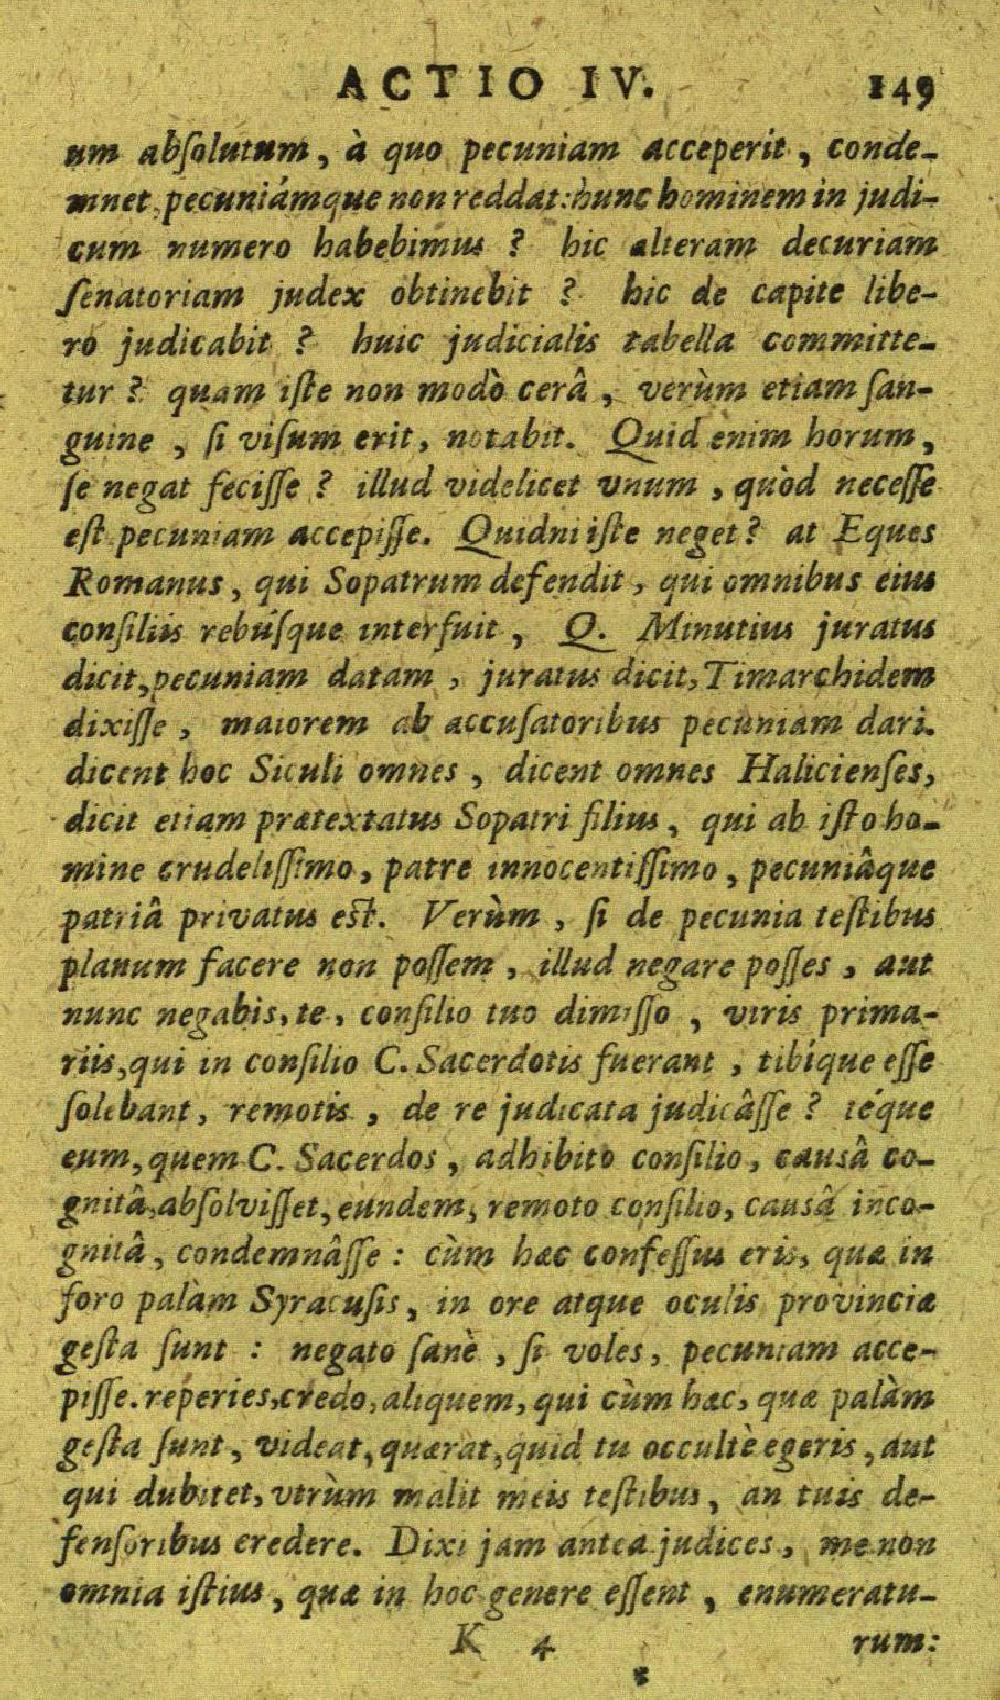 ACTIO IV. 149
um abſolutum, à quo pecuniam acceperit, conde-
mnet, pecuniámque non reddat: hunc hominem in judi-
cum numero habebimus ? hic alteram decuriam
ſenatoriam judex obtinebit ? hic de capite libe-
ro judicabit ? huic judicialis tabella committe-
tur ? quam iſte non modò cerâ, verùm etiam ſan-
guine, ſi viſum erit, notabit. Quid enim horum,
ſe negat feciſſe ? illud videlicet vnum, quòd neceſſe
eſt pecuniam accepiſſe. Quidni iſte neget ? at Eques
Romanus, qui Sopatrum defendit, qui omnibus eius
conſiliis rebúſque interfuit, Q. Minutius juratus
dicit, pecuniam datam, juratus dicit, Timarchidem
dixiſſe, maiorem ab accuſatoribus pecuniam dari.
dicent hoc Siculi omnes, dicent omnes Halicienſes,
dicit etiam prætextatus Sopatri filius, qui ab iſto ho-
mine crudeliſſimo, patre innocentiſſimo, pecuniâque
patriâ privatus eſt. Verùm, ſi de pecunia teſtibus
planum facere non poſſem, illud negare poſſes, aut
nunc negabis, te, conſilio tuo dimiſſo, viris prima-
riis, qui in conſilio C. Sacerdotis fuerant, tibíque eſſe
ſolebant, remotis, de re judicata judicâſſe ? téque
eum, quem C. Sacerdos, adhibito conſilio, causâ co-
gnitâ, abſolviſſet, eundem, remoto conſilio, causâ inco-
gnitâ, condemnâſſe : cùm hæc confeſſus eris, quæ in
foro palàm Syracuſis, in ore atque oculis provinciæ
geſta ſunt : negato ſanè, ſi voles, pecuniam acce-
piſſe. reperies, credo, aliquem, qui cùm hæc, quæ palàm
geſta ſunt, videat, quærat, quid tu occultè egeris, aut
qui dubitet, vtrùm malit meis teſtibus, an tuis de-
fenſoribus credere. Dixi jam antea judices, me non
omnia iſtius, quæ in hoc genere eſſent, enumeratu-
K 4 rum: